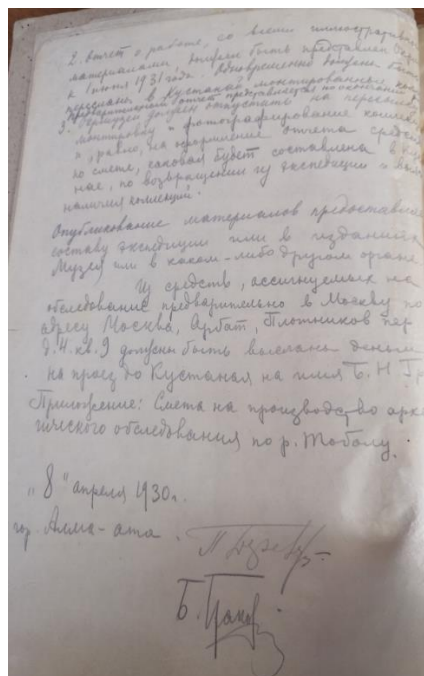 2. Отчет о работе, со всеми иллюстратив
материалами, должен быть представлен
к 1 июня 1931 года. Одновременно должна быть
переслана в Кустанай монтированная
Предварительный отчет представляется по окончании
3. Окрмузей должен отпустить на пересылку
монтировку и фотографирование коллекц
и, равно, на оформление отчета средств
по смете, каковая будет составлена в Куста
нае, по возвращении из экспедиции и
наличия коллекций.
Опубликование материалов предоставляе
составу экспедиции или в изданиях
Музея или в каком-либо другом органе
Из средств, ассигнуемых на
обследование предварительно в Москву по
адресу Москва, Арбат, Плотников пер
д. 4. кв. 9 должны быть высланы деньги
на проезд до Кустаная на имя Б. Н. Гр
Приложение: Смета на производство архе
гического обследования по р. Тоболу.
„8" апреля 1930 г.
гор. Алма-ата.
Б. Граков